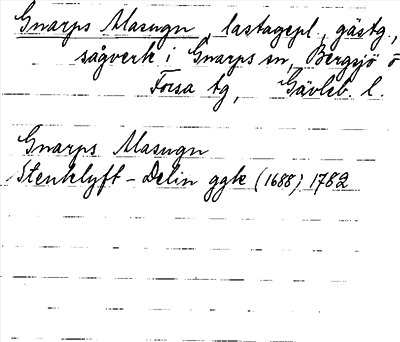 Gnarps Masugn, lastagepl., gästg.,
sågverk i Gnarps sn, Bergsjö o
Forsa tg, Gävleb. l.
Gnarps Masugn
Stenklyft - Delin ggk (1688) 1782